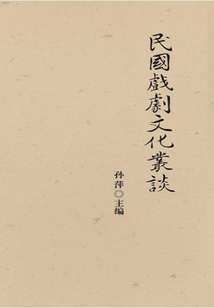 民國戲劇文化叢談
孙萍 主编